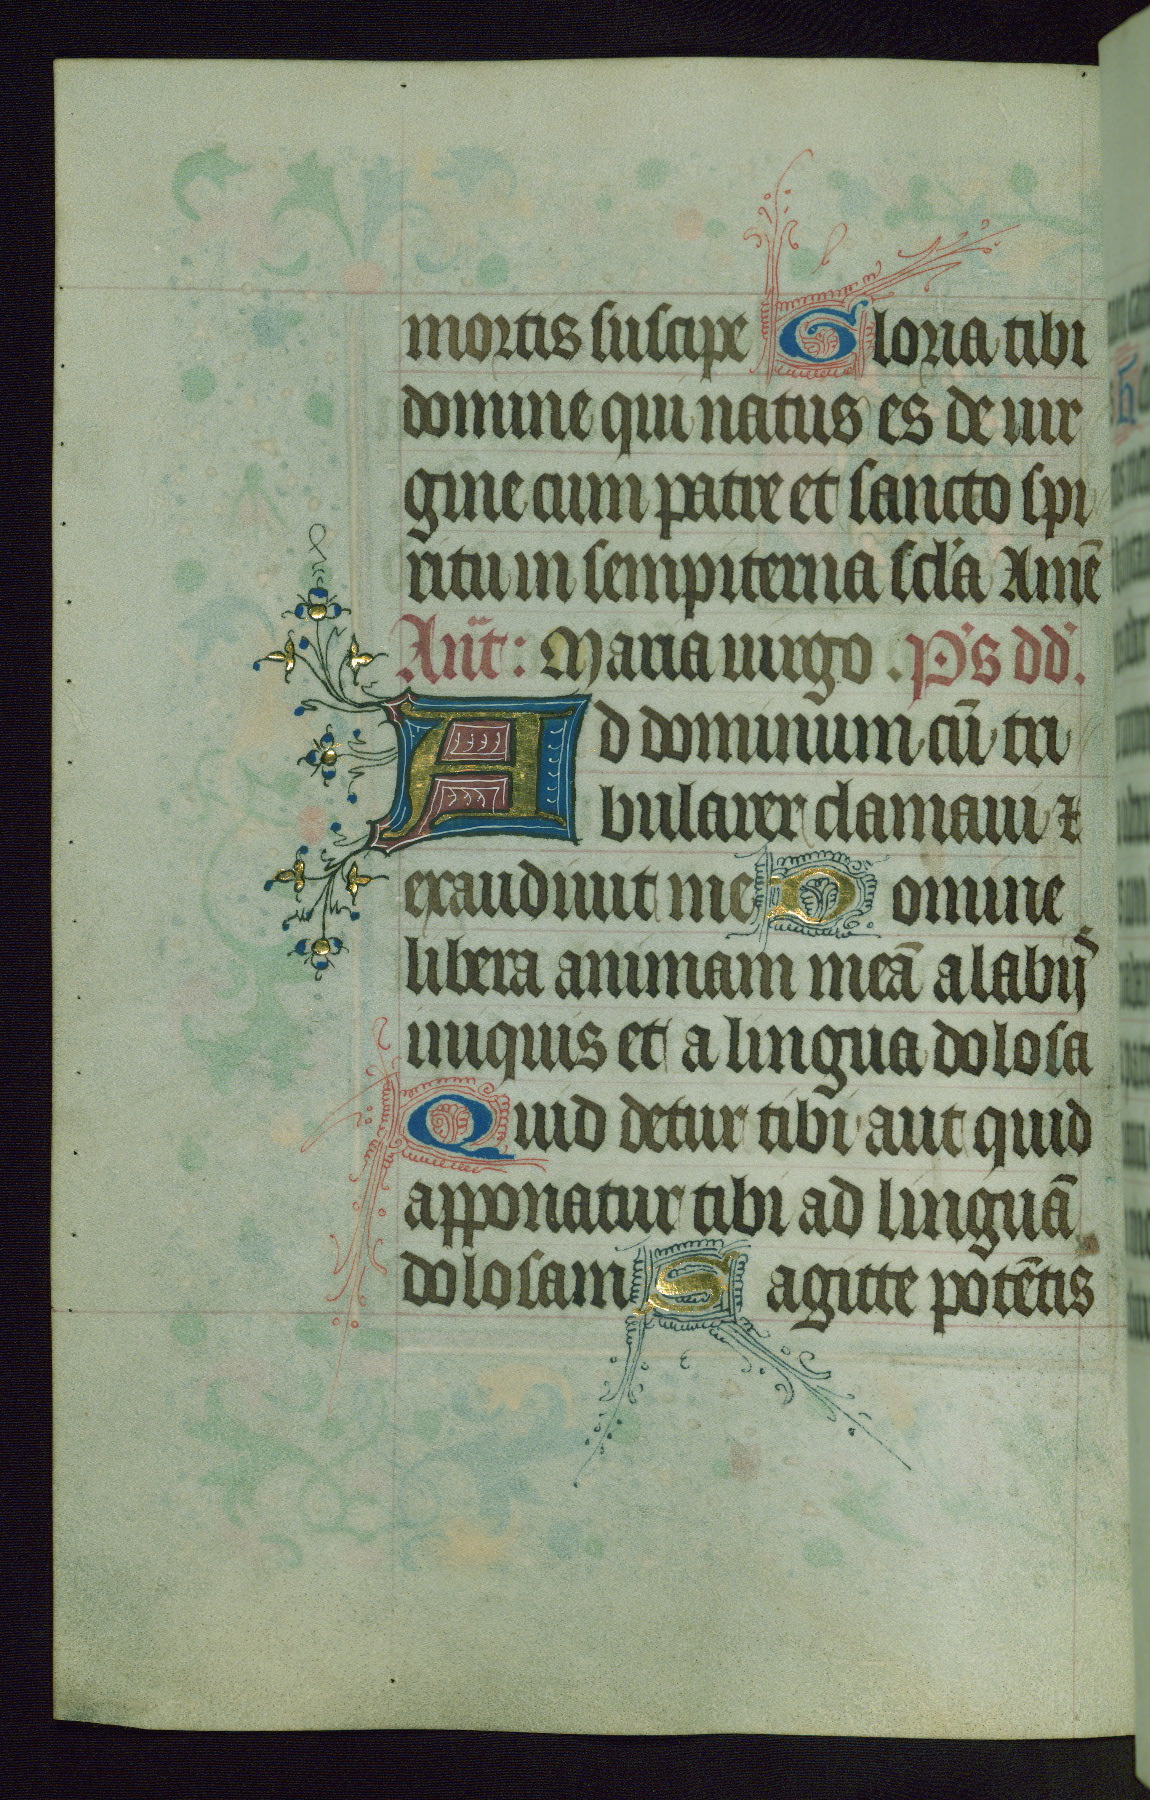 mortis suscipe Gloria tibi
domine qui natus es de uir
gine cum patre et sancto spi
ritu in sempiterna sc̄la Amē
Añt: Maria uirgo. Ps dd.
Ad dominum cū tri
bularer clamaui ⁊
exaudiuit me Domine
libera animam meā a labijs
iniquis et a lingua dolosa
Quid detur tibi aut quid
apponatur tibi ad linguā
dolosam Sagitte potētis